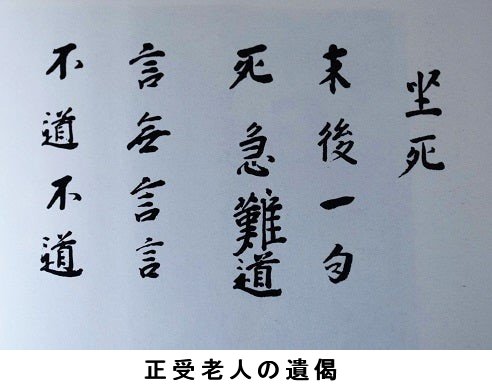 坐死
末後一句
死急難道
言無言言
不道不道
正受老人の遺偈